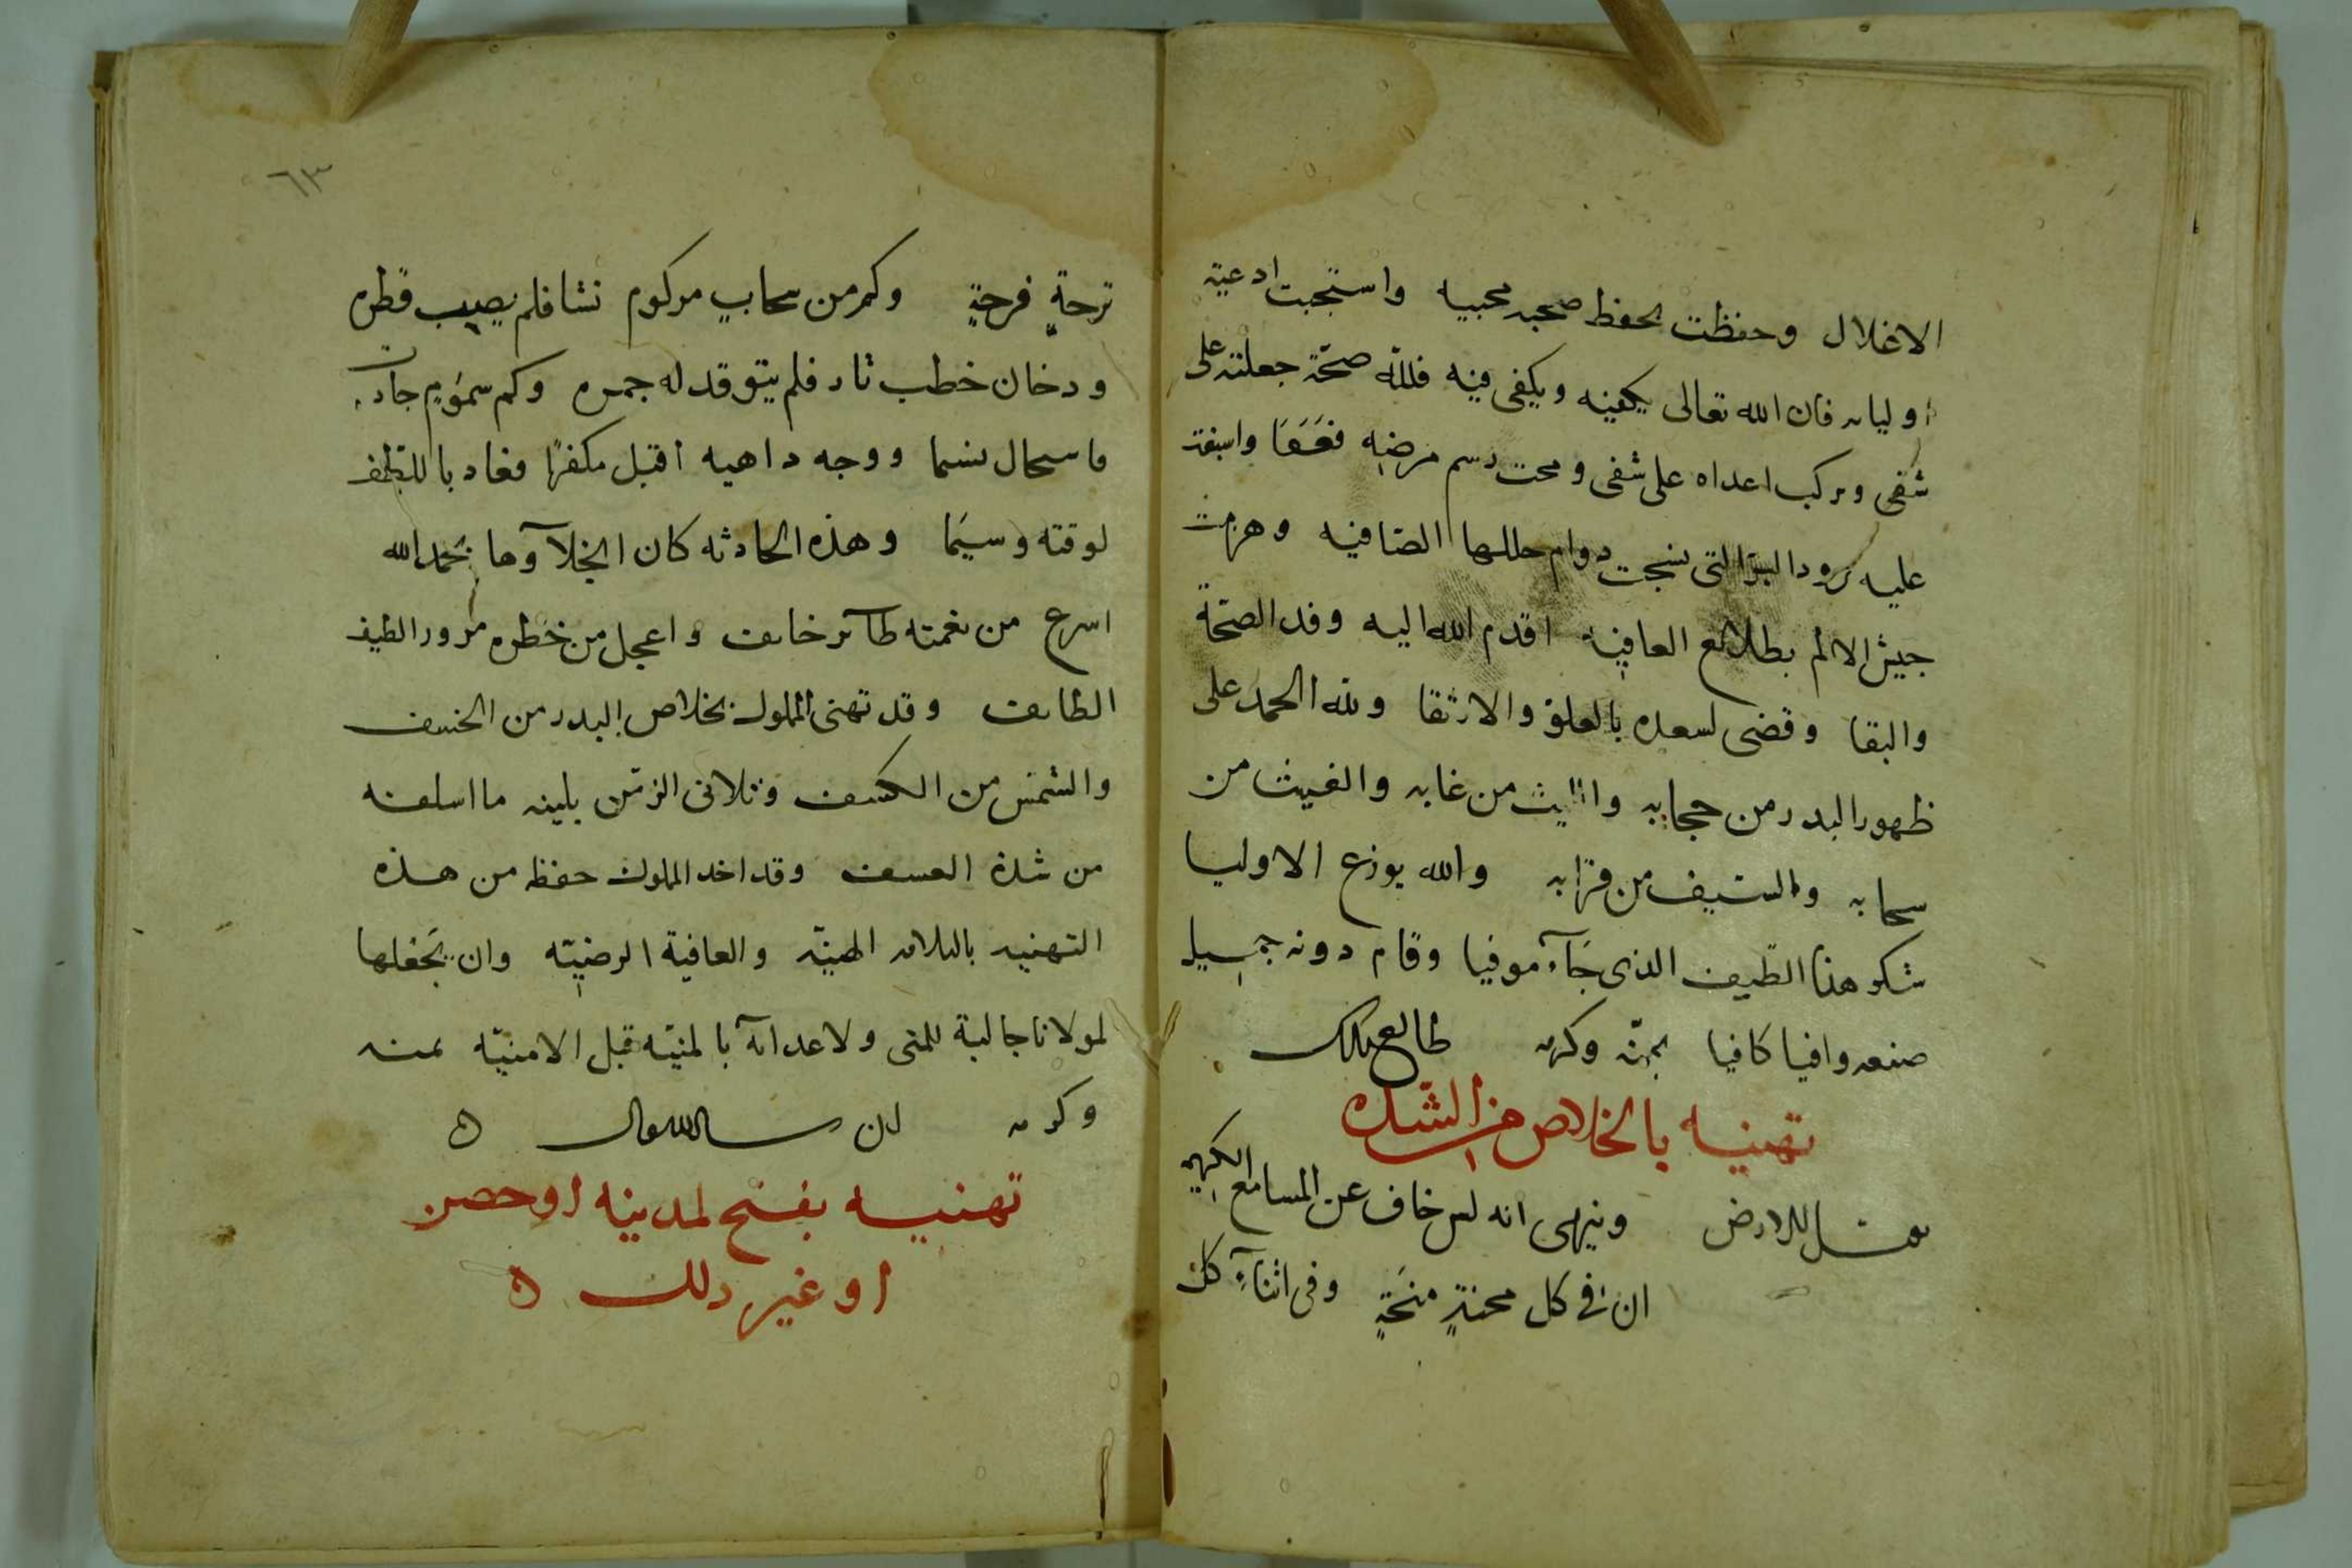 الاغلال وحفظت بحفظ صحبه محبيه واستجبت ادعية
اوليايه فان الله تعالى يكفيه ويكفى فيه فلله صحة جعلته على
شفى وتركب اعداه على شفى ومحت رسم مرضه فعفا واسبغت
عليه برود البر التى نسجت دوام حللها الضافيه وهزمت
جيش الالم بطلائع العافيه اقدم الله اليه وفد الصحة
والبقا وقضى لسعده بالعلو والارتقا ولله الحمد على
ظهور البدر من حجابه والليث من غابه والغيث من
سحابه والسيف من قرابه والله يوزع الاوليا
شكر هذا الطيف الذى جآء موفيا وقام دونه جميل
صنعه وافيا كافيا بمنه وكرمه طالع بذلك
تهنيه بالخلاص من الشده
يقبل الارض وينهى انه ليس خاف عن المسامع الكريمه
ان فى كل محنةٍ منحَةٍ وفى اثنآءِ كل
٦٣
ترحةٍ فرحةٍ وكم من سحابٍ مركوم نشا فلم يصيب قطره
ودخان خطب ثار فلم يتوقد له جمره وكم سمومٍ جارت
فاستحال نسيما ووجه داهيه اقبل مكفهرا فعاد باللطف
لوقته وسيما وهذه الحادثه كان انجلآوها بحمد الله
اسرع من نغمته طآئر خايف واعجل من خطره مرور الطيف
الطايف وقد تهنى المملوك بخلاص البدر من الخسف
والشمس من الكسف وتلافى الزمن بلينه ما اسلفه
من شدة العسف وقد اخد المملوك حفظه من هذه
التهنيه بالسلامه الهنيّه والعافية الرضيّه وان يجعلها
لمولانا جالبة للمنى ولاعدآئه بالمنيّه قبل الامنيّه بمنه
وكرمه ان شا الله تعالى ه
تهنيه بفتح لمدينه اوحصن
او غير دلك ه